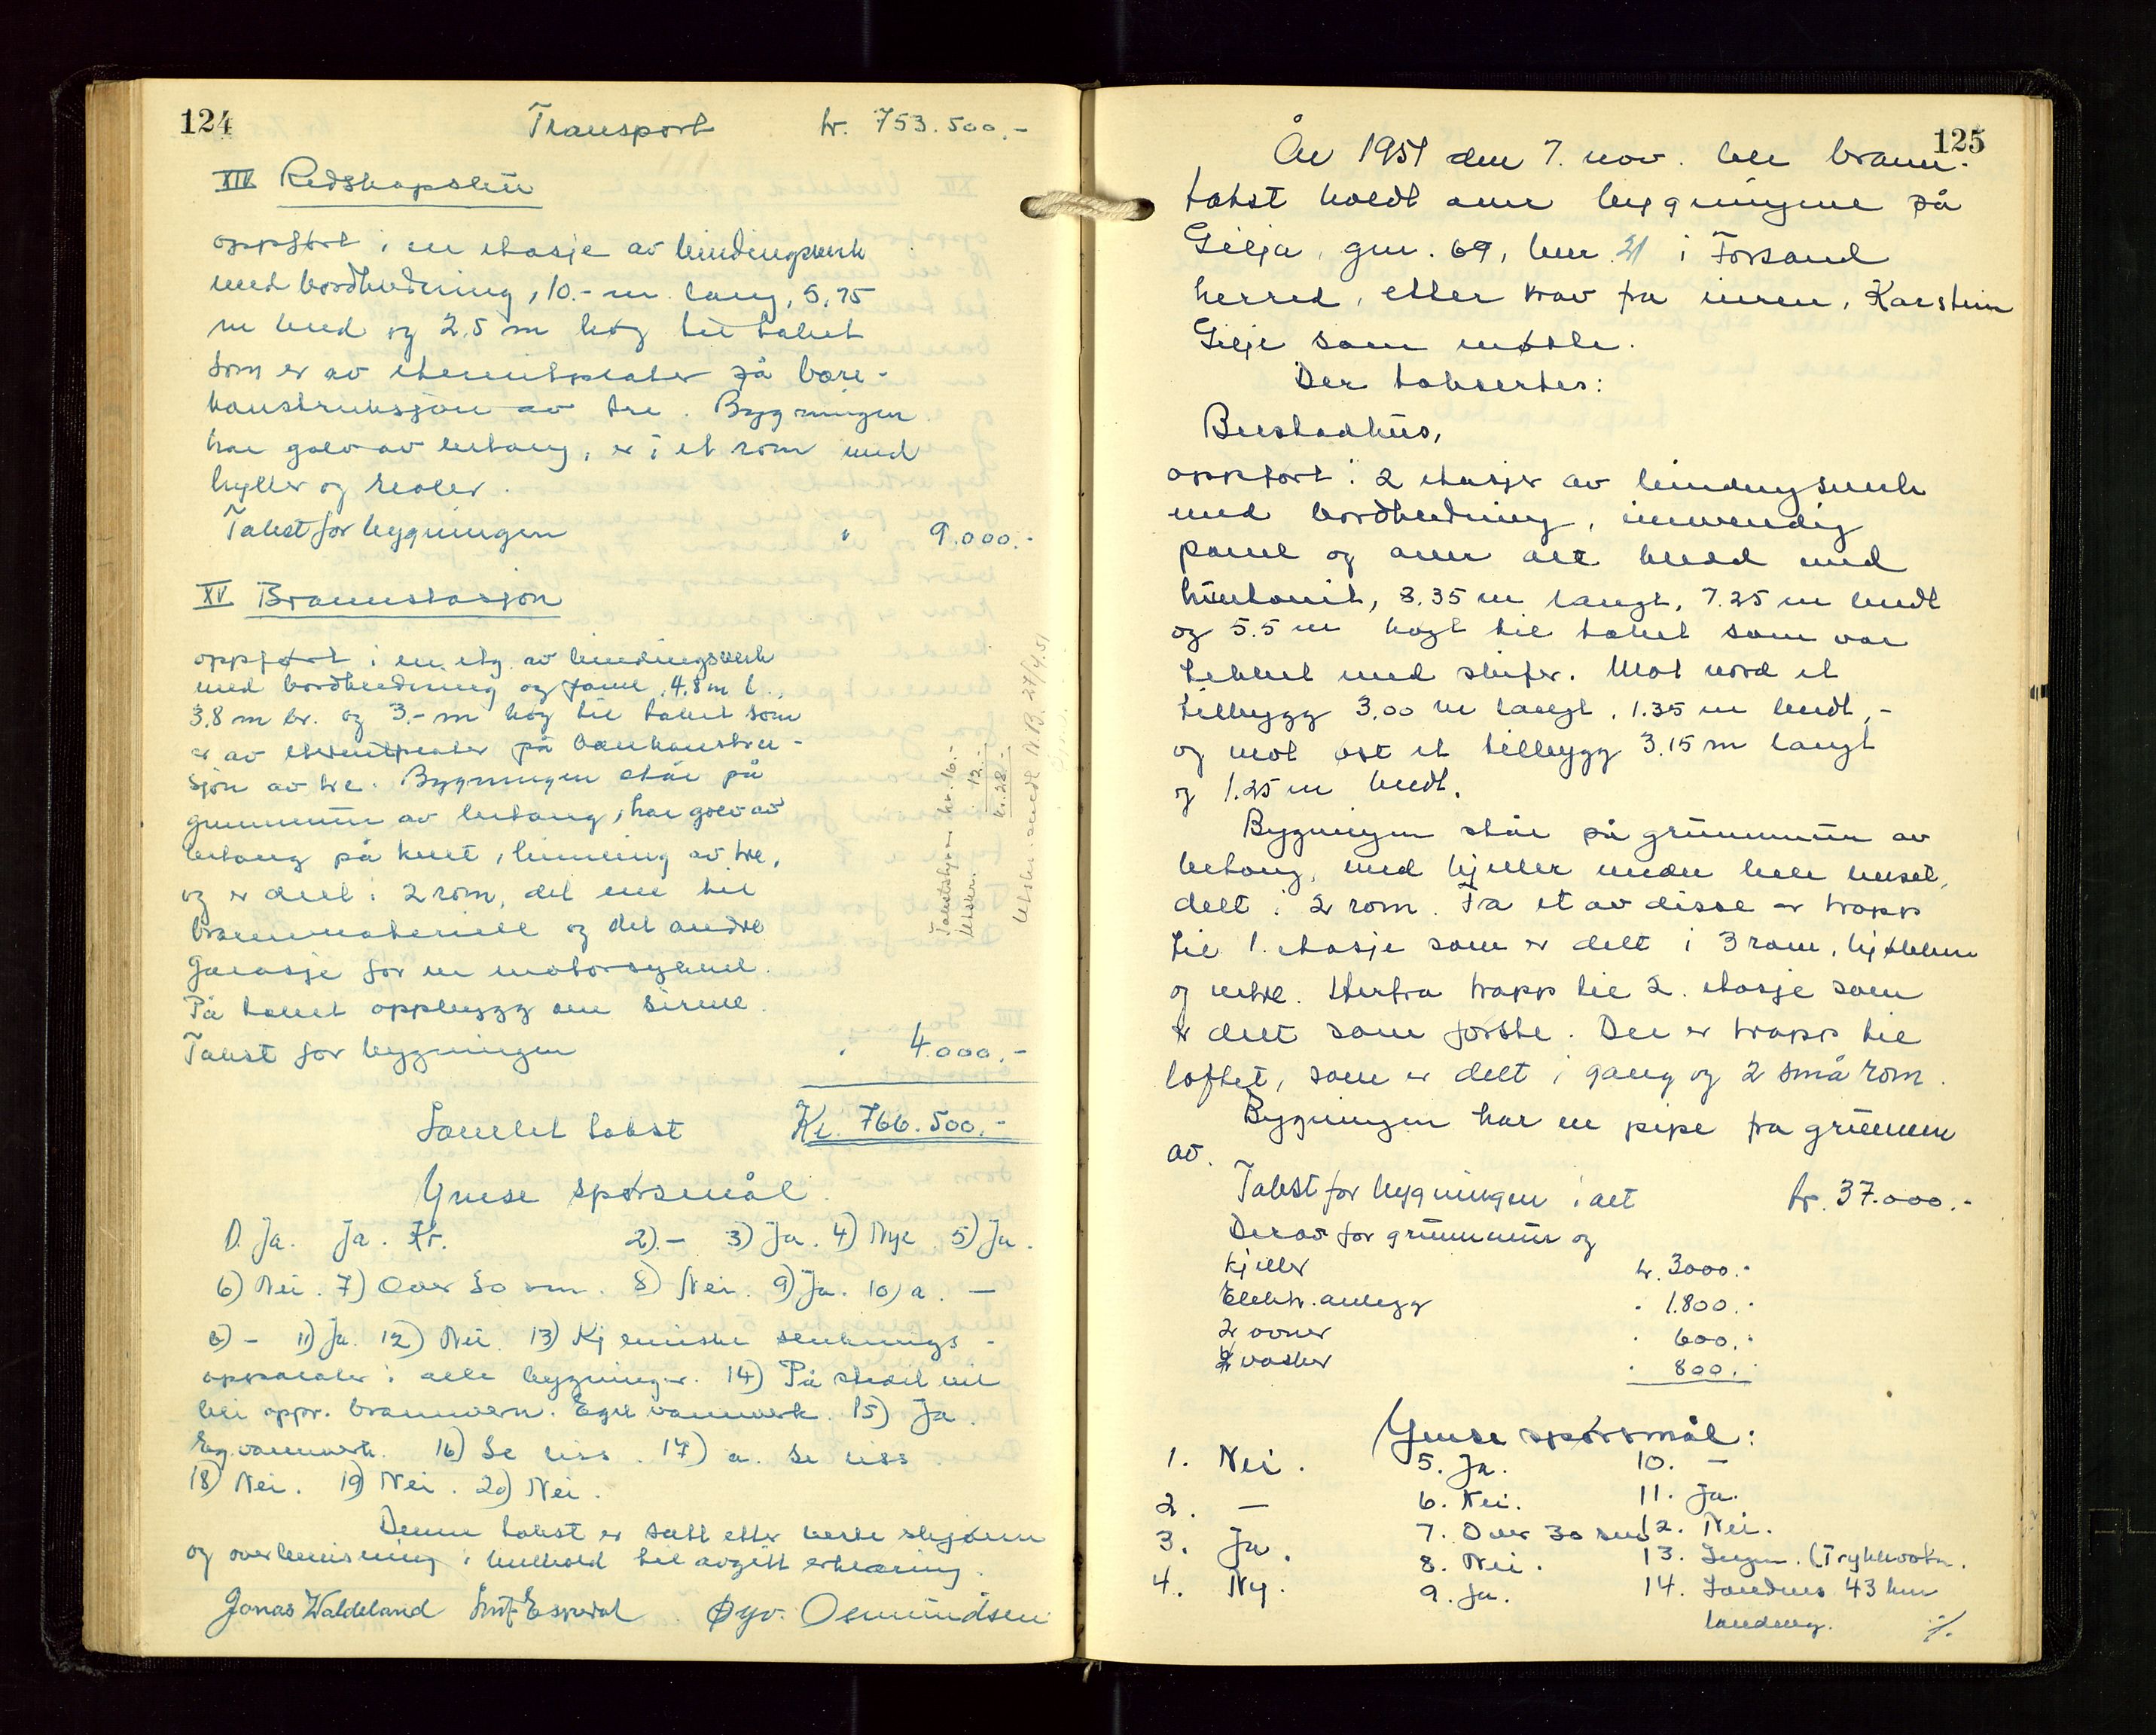 124
Transport kr. 753.500.-
XIV Redskapshus
oppført i en etasje av bindingsverk
med bordkledning, 10.- m. lang, 5,75
m bred og 2,5 m høg til taket
som er av eternitplater på bære-
konstruksjon av tre. Bygningen
har golv av betong, er i et rom med
hyller og reoler.
Takst for bygningen " 9.000.-
XV Brannstasjon
oppført i en etg. av bindingsverk
med bordkledning og panel, 4,8 m l.,
3,8 m br. og 3.- m høg til taket som
er av eternitplater på bærekonstruk-
sjon av tre. Bygningen står på
grunnmur av betong, har golv av
betong på kult, himling av tre,
og er delt i 2 rom, det ene til
brannmateriell og det andre
garasje for en motorsykkel.
På taket oppbygg om sirene.
Takst for bygningen " 4.000.-
Samlet takst Kr. 766.500.-
Ymse spørsmål.
1). Ja. Ja. Kr. 2).- 3) Ja. 4) Nye 5) Ja.
6) Nei. 7) Over 50 cm. 8) Nei. 9) Ja. 10) a. -
b) - 11) Ja. 12) Nei. 13) Kjemiske sluknings-
apparater i alle bygninger. 14) På stedet vil
bli oppr. brannvern. Eget vannverk. 15) Ja.
Eg. vannverk. 16) Se riss. 17) a. Se riss.
18) Nei. 19) Nei. 20) Nei.
Denne takst er satt etter beste skjønn
og overbevisning i henhold til avgitt erklæring.
Jonas Waldeland Espedal Øyv. Osmundsen
Takstskjema kr. 16.-
12.-
kr. 28.-
125
År 1951 den 7. nov. ble brann-
takst holdt over bygningene på
Gilja, gnr. 69, bnr. 21 i Forsand
herred, etter krav fra eieren, Karstein
Gilje som møtte.
Der taksertes:
Beistadhus,
oppført i 2 etasjer av bindingsverk
med bordkledning, innvendig
panel og over alt kledd med
huntonit, 8.35 m langt, 7.25 m bredt
og 5.5 m høgt til taket som var
tekket med skifer. Mot nord et
tilbygg 3.00 m langt, 1.35 m bredt,-
og mot øst et tilbygg 3.15 m langt
og 1.25 m bredt.
Bygningen står på grunnmur av
betong, med kjeller under hele huset,
delt i 2 rom. Fra et av disse er trapp
til 1. etasje som er delt i 3 rom, kjøkken
og entre. Herfra trapp til 2. etasje som
er delt som første. Der er trapp til
loftet, som er delt i gang og 2 små rom.
Bygningen har en pipe fra grunnen
av.
Takst for bygningen i alt kr. 37.000.-
Derav for grunnmur og
kjeller kr. 3000.-
Elektr. anlegg " 1.800.-
2 ovner " 600.-
vasker " 800.-
Ymse spørsmål:
1. Nei. 5. Ja. 10. -
2. - 6. Nei. 11. Ja.
3. Ja. 7. Over 30 cm 12. Nei.
4. Ny. 8. Nei. 13. Ingen. (Trykkvatn.
9. Ja. 14. Sandnes 43 km
landveg. ./.